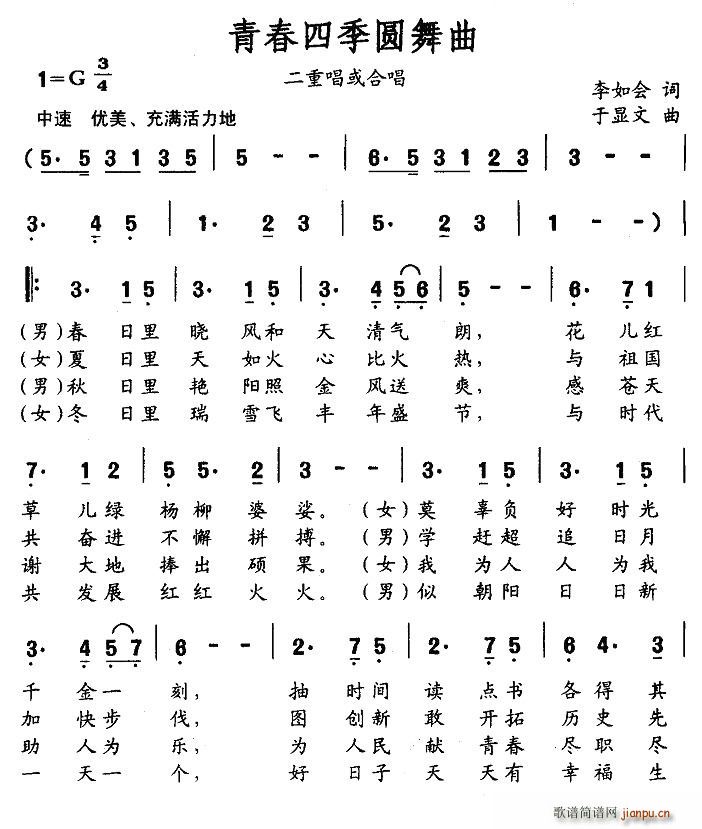 青春四季圆舞曲
1=G 3/4 二重唱或合唱
李如会 词
中速 优美、充满活力地 于显文 曲
(5· 5 3 1 3 5 | 5 - - | 6· 5 3 1 2 3 | 3 - - |
3· 4 5 | 1· 2 3 | 5· 2 3 | 1 - - ) |
‖: 3· 1 5 | 3· 1 5 | 3· 4 5 6 | 5 - - | 6· 7 1 |
(男)春 日里 晓 风和 天 清气 朗, 花 儿红
(女)夏 日里 天 如火 心 比火 热, 与 祖国
(男)秋 日里 艳 阳照 金 风送 爽, 感 苍天
(女)冬 日里 瑞 雪飞 丰 年盛 节, 与 时代
7· 1 2 | 5 5· 2 | 3 - - | 3· 1 5 | 3· 1 5 |
草 儿绿 杨柳 婆 娑。 (女)莫 辜负 好 时光
共 奋进 不懈 拼 搏。 (男)学 赶超 追 日月
谢 大地 捧出 硕 果。 (女)我 为人 人 为我
共 发展 红红 火 火。 (男)似 朝阳 日 日新
3· 4 5 7 | 6 - - | 2· 7 5 | 2· 7 5 | 6 4· 3 |
千 金一 刻, 抽 时间 读 点书 各得 其
加 快步 伐, 图 创新 敢 开拓 历史 先
助 人为 乐, 为 人民 献 青春 尽职 尽
一 天一 个, 好 日子 天 天有 幸福 生
歌谱简谱网
jianpu.cn